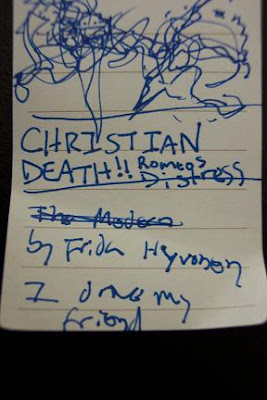 CHRISTIAN
DEATH!! Romeos
Distress
The Modern
by Frida Hyvonen
I drove my
friend